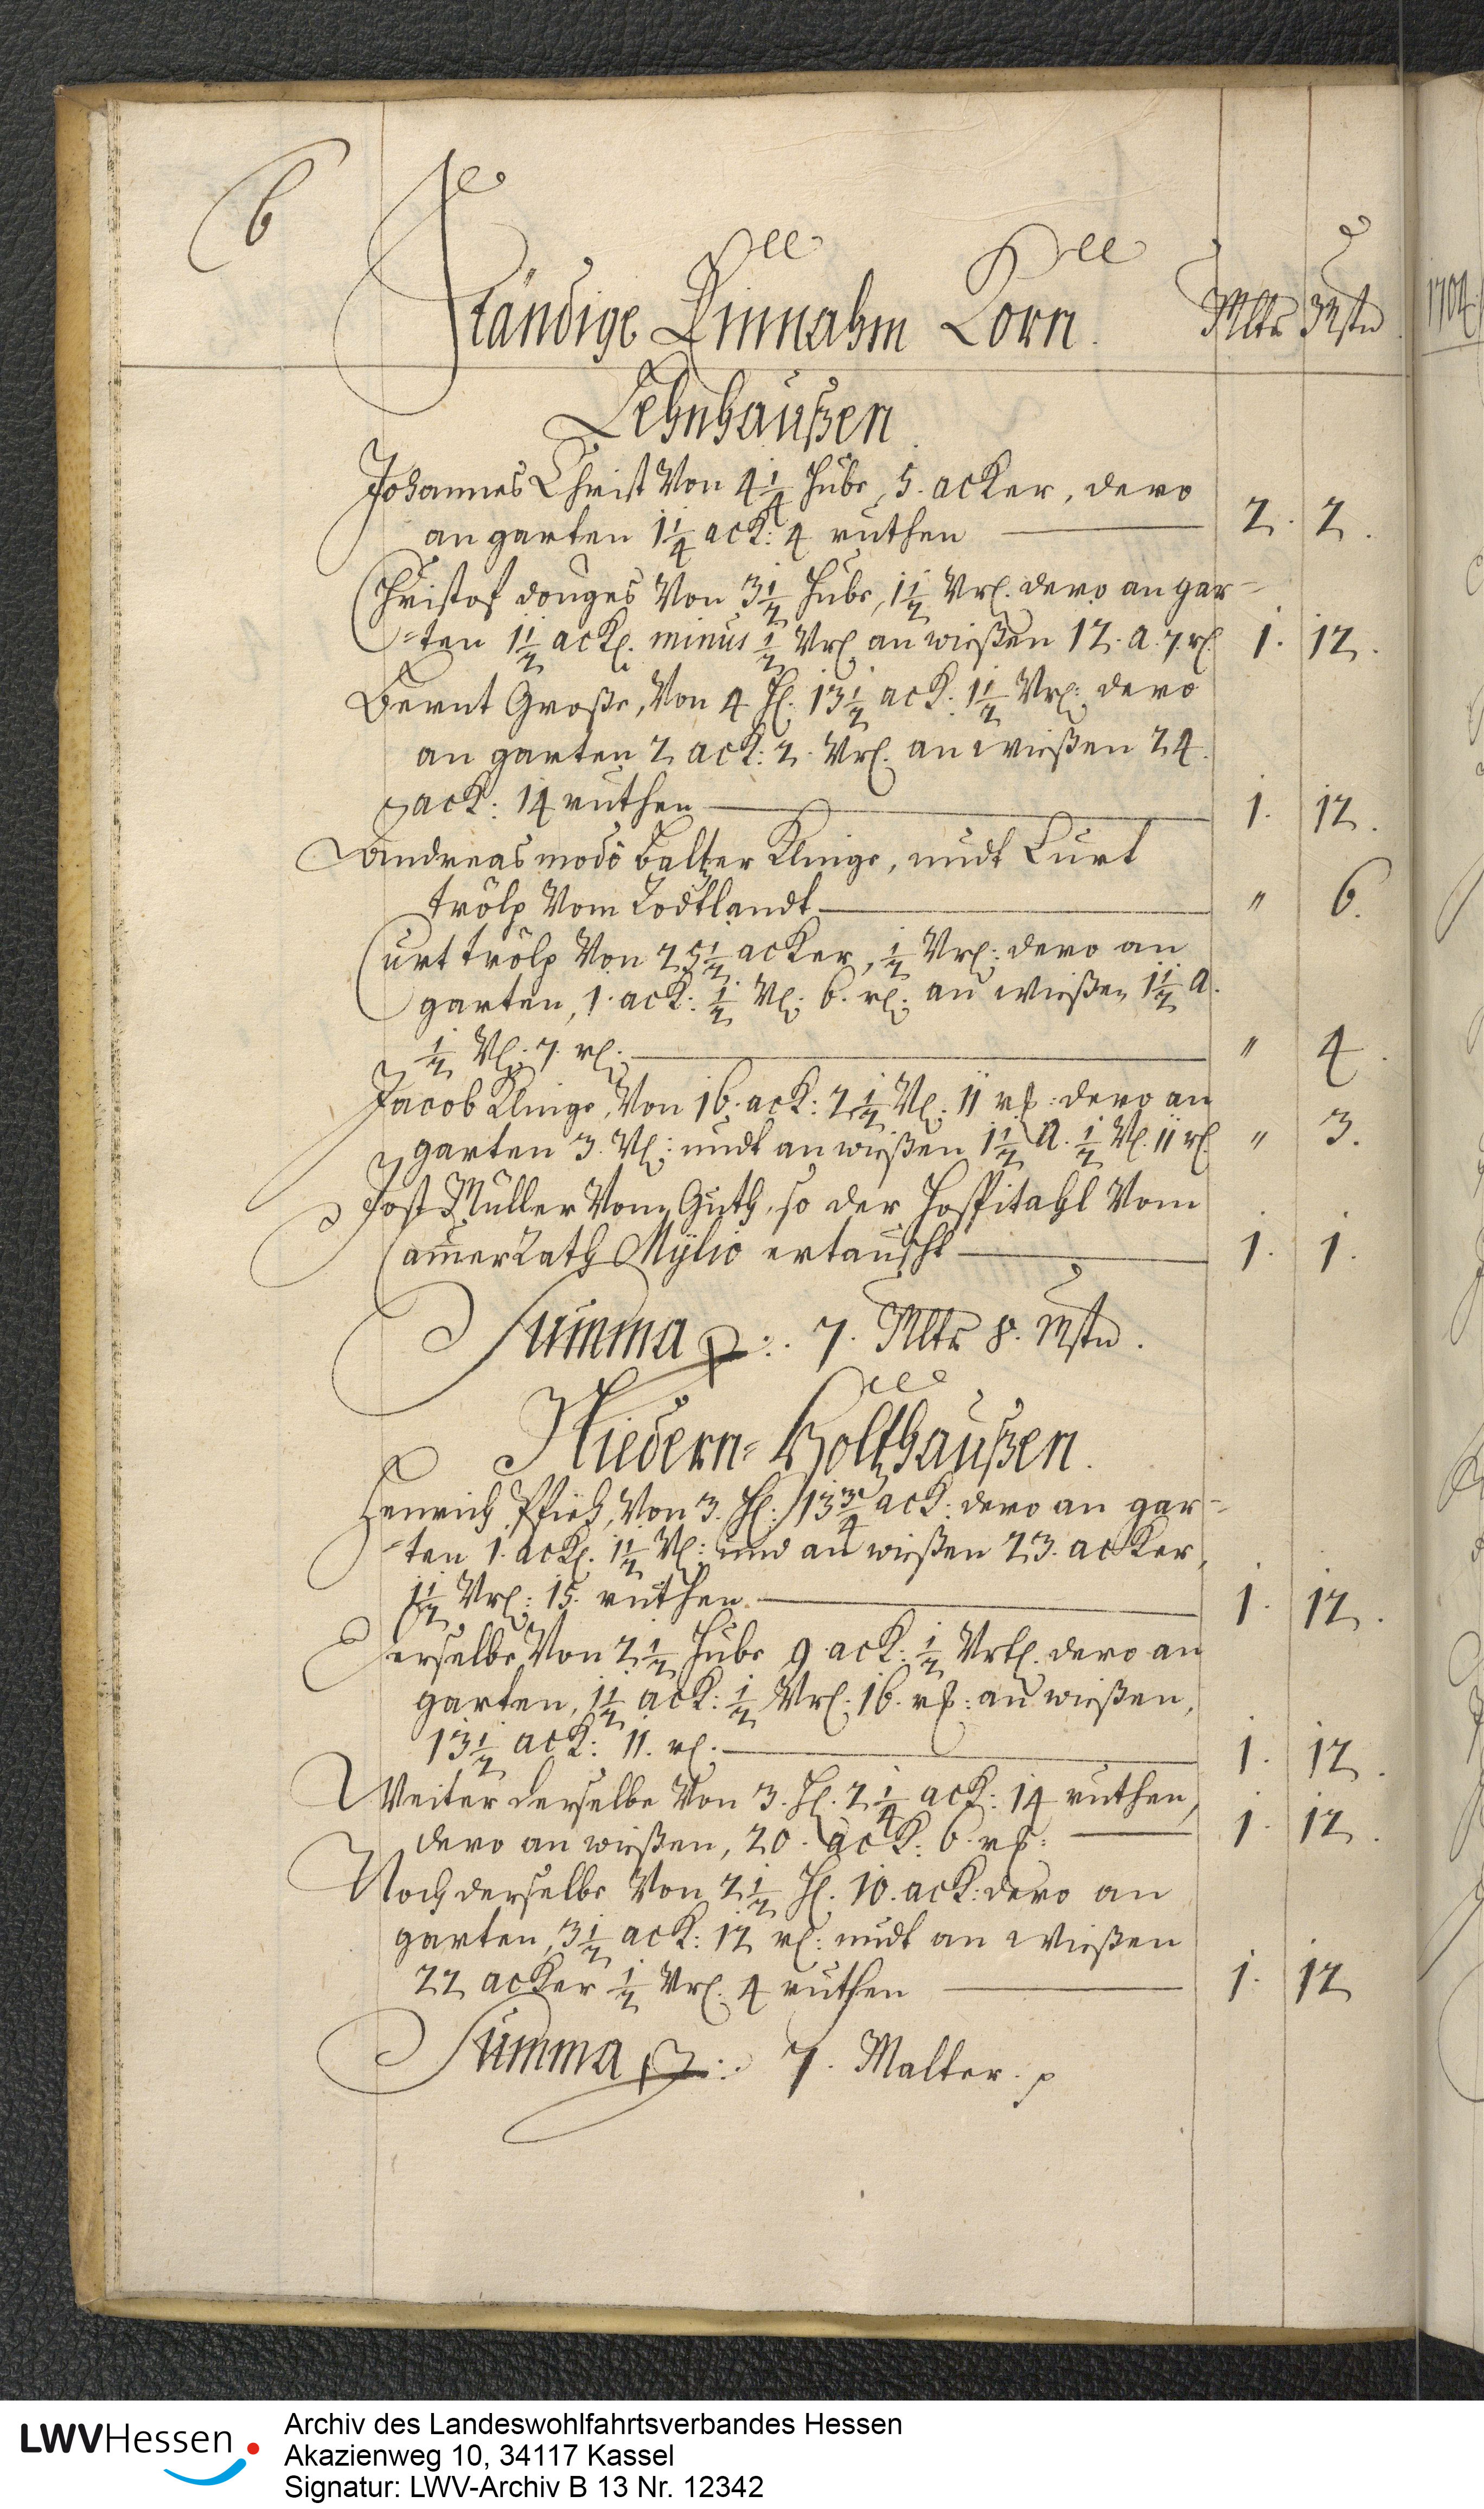 6
Ständige Einnahm Korn. Mltr Mstn
1704
Lehnhaußen
Johannes Christ Von 4 1/4 Hube, 5. acker, dero
an garten 1 1/4 ack: 4 ruthen 2. 2.
Christof donges Von 3 1/2 Hube, 1 1/2 Vrl. dero an gar=
=ten 1 1/2 ackl. minus 1/2 Vrl an wießen 12. a. 7 rl. 1. 12.
Bernt Große, Von 4 Hl. 13 1/2 ack: 1 1/2 Vrl: dero
an garten 2 ack: 2. Vrl. an wießen 24.
ack: 14 ruthen 1. 12.
Andreas modo Baltzer Klinge, undt Curt
trölp Vom Rodtlandt " 6.
Curt trölp Von 25 1/2 acker, 1/2 Vrl: dero an
garten, 1. ack: 1/2 Vl: 6. rl: an wießen 1 1/2 a.
1/2 Vl: 7. rl: " 4.
Jacob Klinge, Von 16. ack: 2 1/2 Vl. 11 rt: dero an
garten 3. Vl: undt an wießen 1 1/2 a. 1/2 Vl. 11 rl. " 3.
Jost Müller Vom Guth, so der Hospitahl Vom
Cam̄erRath Mÿlio ertauscht 1. 1.
Summa p:. 7. Mltr 8. Mstn.
Niedern=Holtzhaußen.
Henrich Pfieh, Von 3. Hl: 13 3/4 ack: dero an gar=
=ten 1. ackl. 1 1/2 Vl: und an wießen 23. acker,
1 1/2 Vrl: 15. ruthen 1. 12.
Derselbe Von 2 1/2 Hube 9. ack: 1/2 Vrtl. dero an
garten, 1 1/2 ack: 1/2 Vrl: 16. rt: an wießen,
13 1/2 ack: 11. rl. 1. 12.
Weiter derselbe Von 3. Hl. 2 1/4 ack: 14 ruthen,
dero an wießen, 20. ack: 6. rt: 1. 12.
Noch derselbe Von 2 1/2 Hl. 10. ack: dero an
garten, 3 1/2 ack: 12 rl: undt an wießen
22 acker 1/2 Vrl. 4 ruthen 1. 12
Summa p:. 7. Malter.
LWVHessen
Archiv des Landeswohlfahrtsverbandes Hessen
Akazienweg 10, 34117 Kassel
Signatur: LWV-Archiv B 13 Nr. 12342